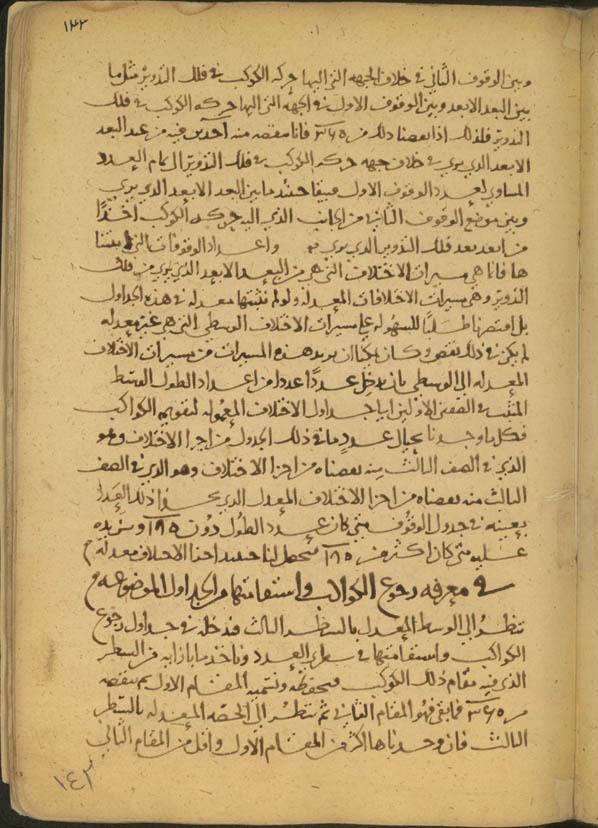 ١٣٢
وبين الوقوف الثاني في خلاف الجهه التي اليها حركه الكوكب في فلك التدوير مثل ما
بين البعد الابعد وبين الوقوف الاول في الجهه التي اليها حركه الكوكب في فلك
التدوير فلذلك اذا نقصنا ذلك من ٣٦٥ فانا منه من عند البعد
الابعد الذي يري في خلاف جهه حركه الكوكب في فلك التدوير الي تمام العدد
المساوي لعدد الوقوف الاول فيبقا حينئذ ما بين البعد الابعد الذي يري
وبين موضع الوقوف الثاني من الجانب الذي اليه حركه الكوكب اخذا
من ابعد بعد فلك التدوير الذي يري واعداد الوقوفات التي اثبتنا
ها فانما هي مسيرات الاختلاف التي هي من البعد الابعد الذي يري من فلك
التدوير وهي مسيرات الاختلافات المعدله ولو لم نثبتها معدله في هذه الجداول
بل اقتصرنا طلبا للسهوله علي مسيرات الاختلاف الوسطي التي هي غير معدله
لم يكن في ذلك نقص وكان يمكنا ان نرد هذه المسيرات من مسيرات الاختلاف
المعدله الي الوسطي بان ندخل عددا عددا من اعداد الطول الوسط
المثبته في الصفين الاولين ابيات جداول الاختلاف المعموله لتقويم الكواكب
فكل ما وجدنا بحيال عدد ما في ذلك الجدول من اجزا الاختلاف وهو
الذي في الصف الثالث منه نقصناه من اجزا الاختلاف وهو الذي في الصف
الثالث منه نقصناه من اجزا الاختلاف المعدل الذي بحذا ذلك العدد
بعينه في جدول الوقوف متي كان عدد الطول دون ١٨٥ ونزيده
عليه متي كان اكثر من ١٨٥ فتحصل لنا حينئذ اجزا الاختلاف معدله
في معرفه رجوع الكواكب واستقامتها من الجداول الموضوعه
تنظر الي الوسط المعدل بالسطر الثالث فتدخله في جداول رجوع
الكواكب واستقامتها في سطري العدد وتاخذ ما بازايه من السطر
الذي فيه مقام ذلك الكوكب فتحفظه وتسميه المقام الاول ثم تنقصه
من ٣٦٥ فما بقي فهو المقام الثاني ثم تنظر الي الحصه المعدله بالسطر
الثالث فان وجدناها اكثر من المقام الاول واقل من المقام الثاني
١٤٣